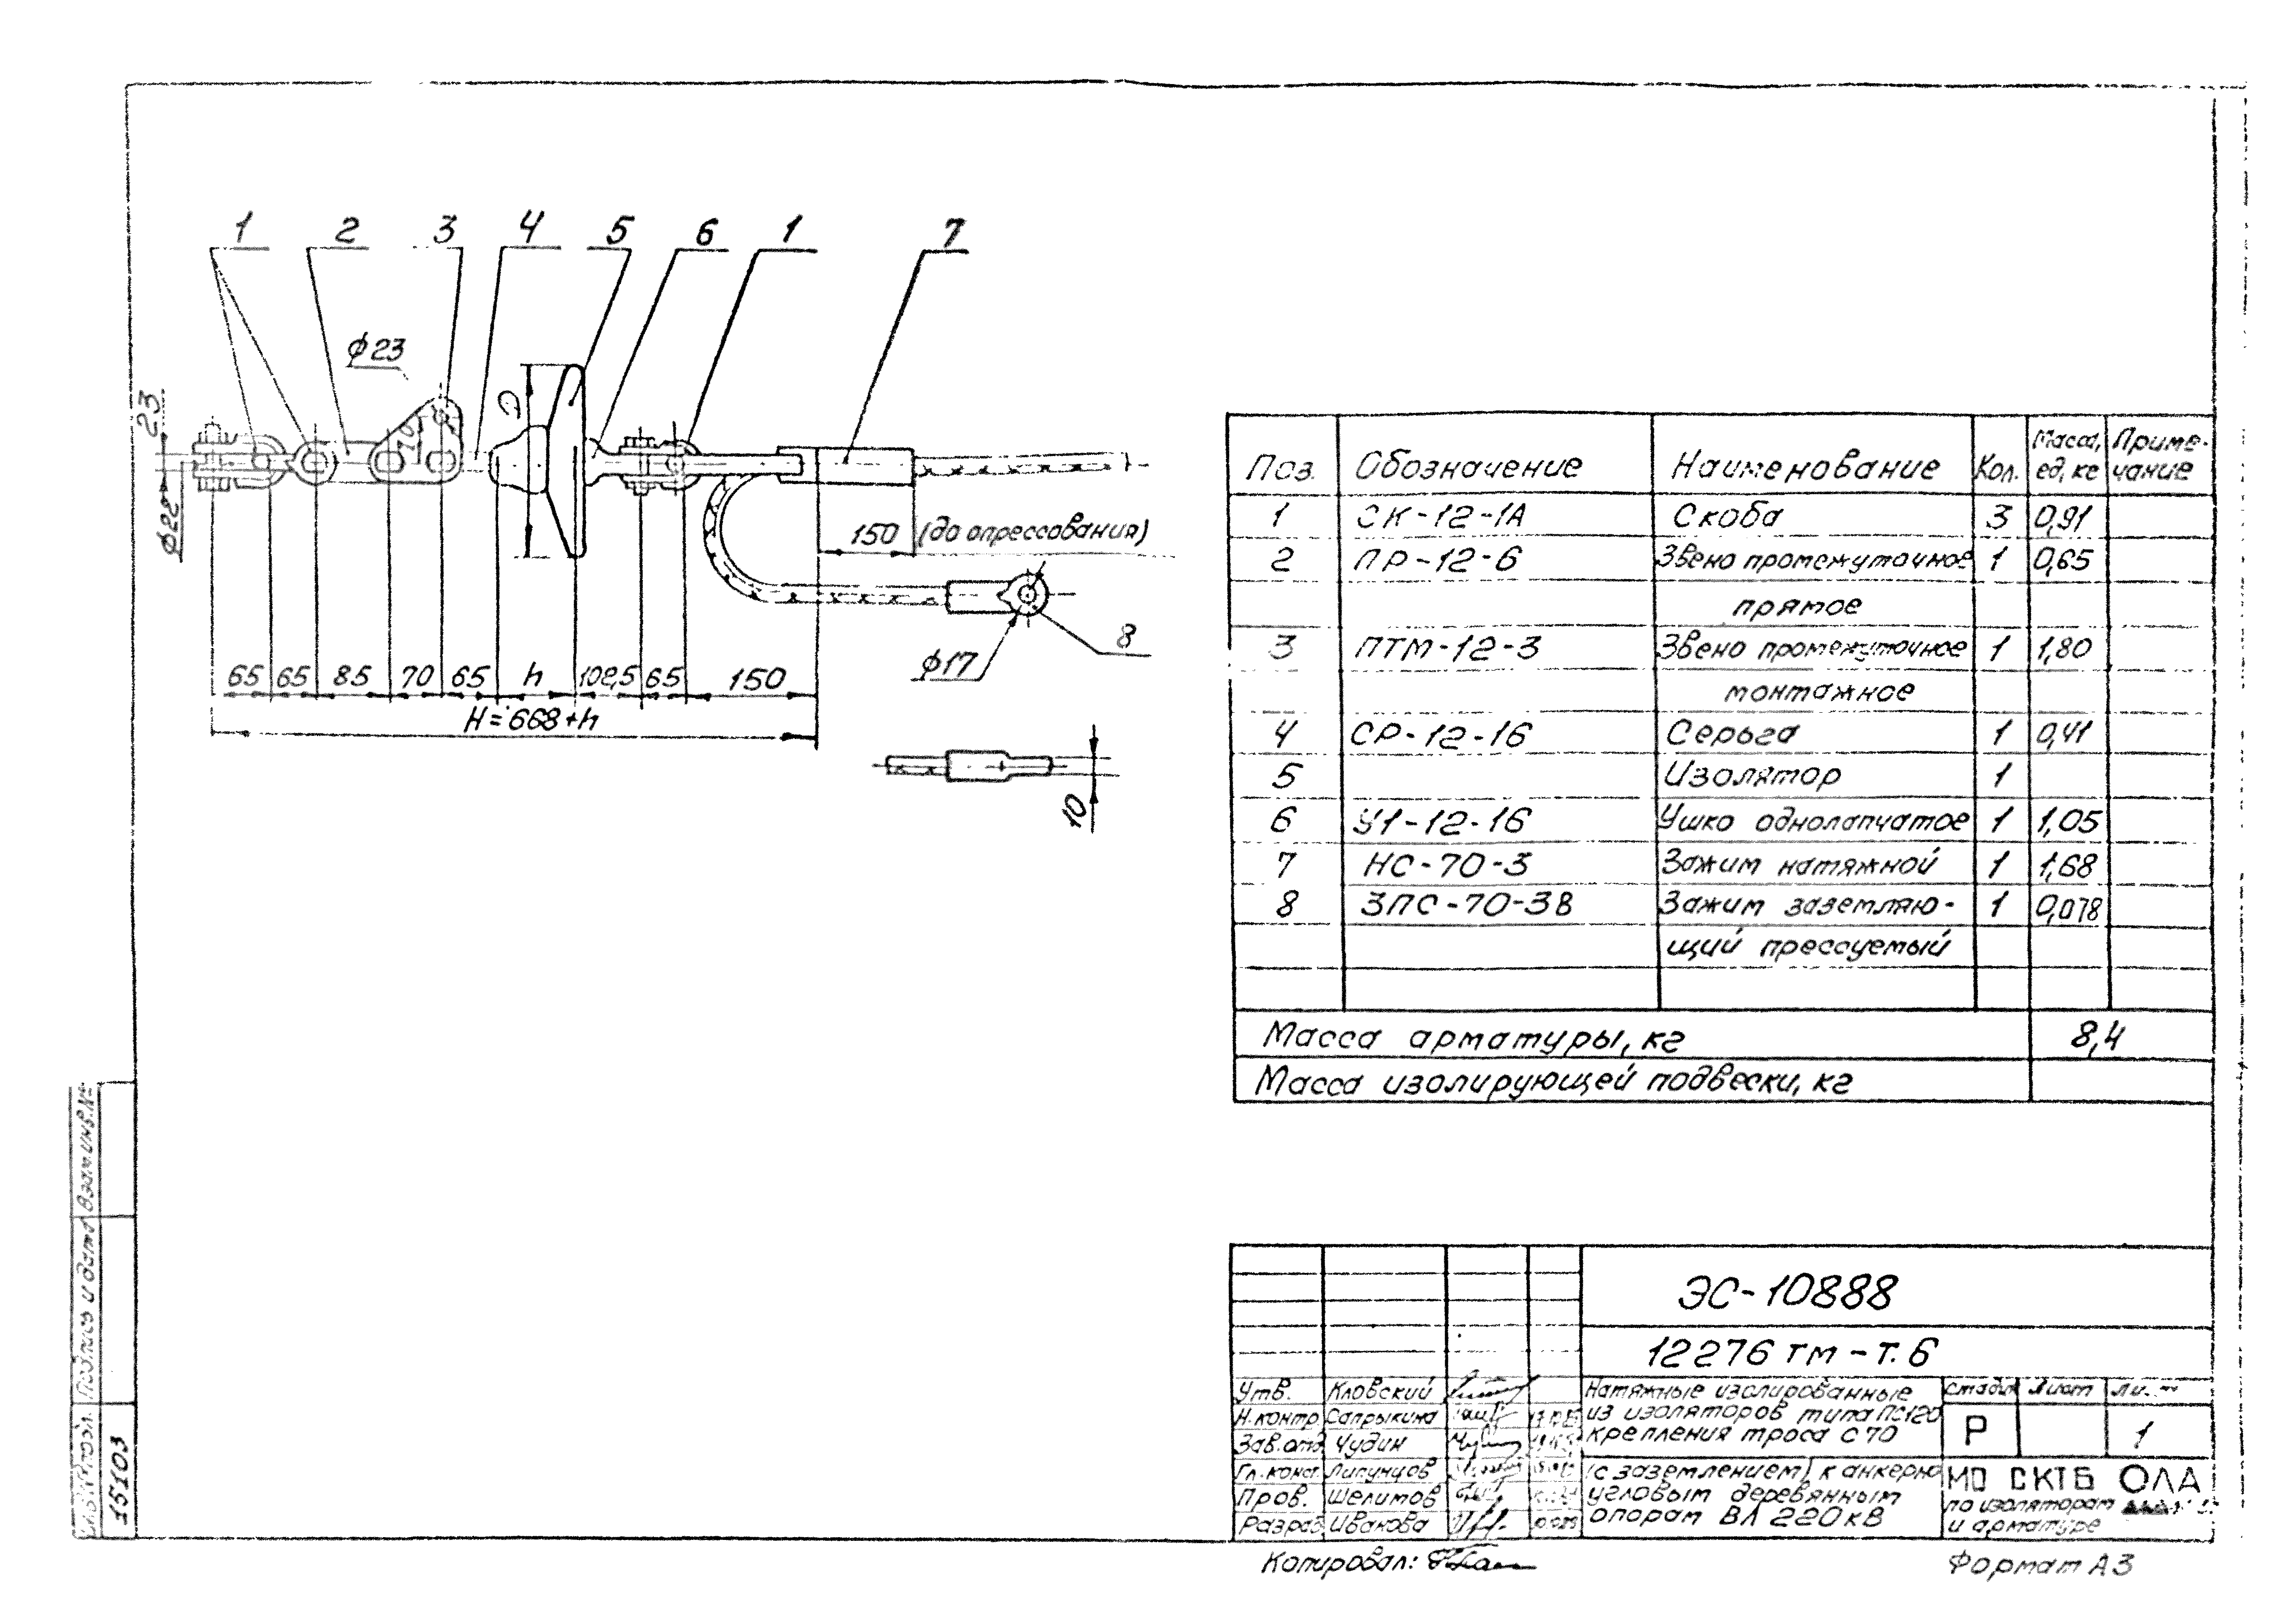 1 2 3 4 5 6 1 7
ф23
23
ф22
70
D
150 (до опрессования)
8
ф17
65 65 85 70 65 h 102,5 65 150
H=668+h
10
Поз. Обозначение Наименование Кол. Масса, ед, кг Приме-чание
1 СК-12-1А Скоба 3 0,91
2 ПР-12-6 Звено промежуточное 1 0,65
прямое
3 ПТМ-12-3 Звено промежуточное 1 1,80
монтажное
4 СР-12-16 Серьга 1 0,41
5 Изолятор 1
6 У1-12-16 Ушко однолапчатое 1 1,05
7 НС-70-3 Зажим натяжной 1 1,68
8 ЗПС-70-3В Зажим заземляю- 1 0,078
щий прессуемый
Масса арматуры, кг 8,4
Масса изолирующей подвески, кг
ЭС-10888
12276 тм - т. 6
Утв. Кловский
Н.контр Сапрыкина
Зав.отд. Чудин
Гл.конст. Липунцов
Пров. Шелимов
Разраб. Иванова
Натяжные изолированные
из изоляторов типа ПС120
крепления троса С70
(с заземлением) к анкерно
угловым деревянным
опорам ВЛ 220 кВ
Стадия Лист
Р 1
МО СКТБ ОЛА
по изоляторам
и арматуре
Копировал:
Формат А3
Взам.инв.№
Подпись и дата
Инв.№ подл.
15103